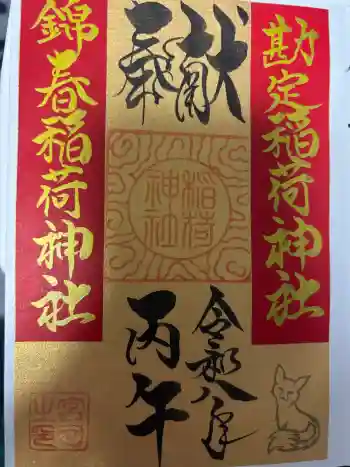 奉献
勘定稲荷神社
錦春稲荷神社
稲荷神社
令和八年
丙午